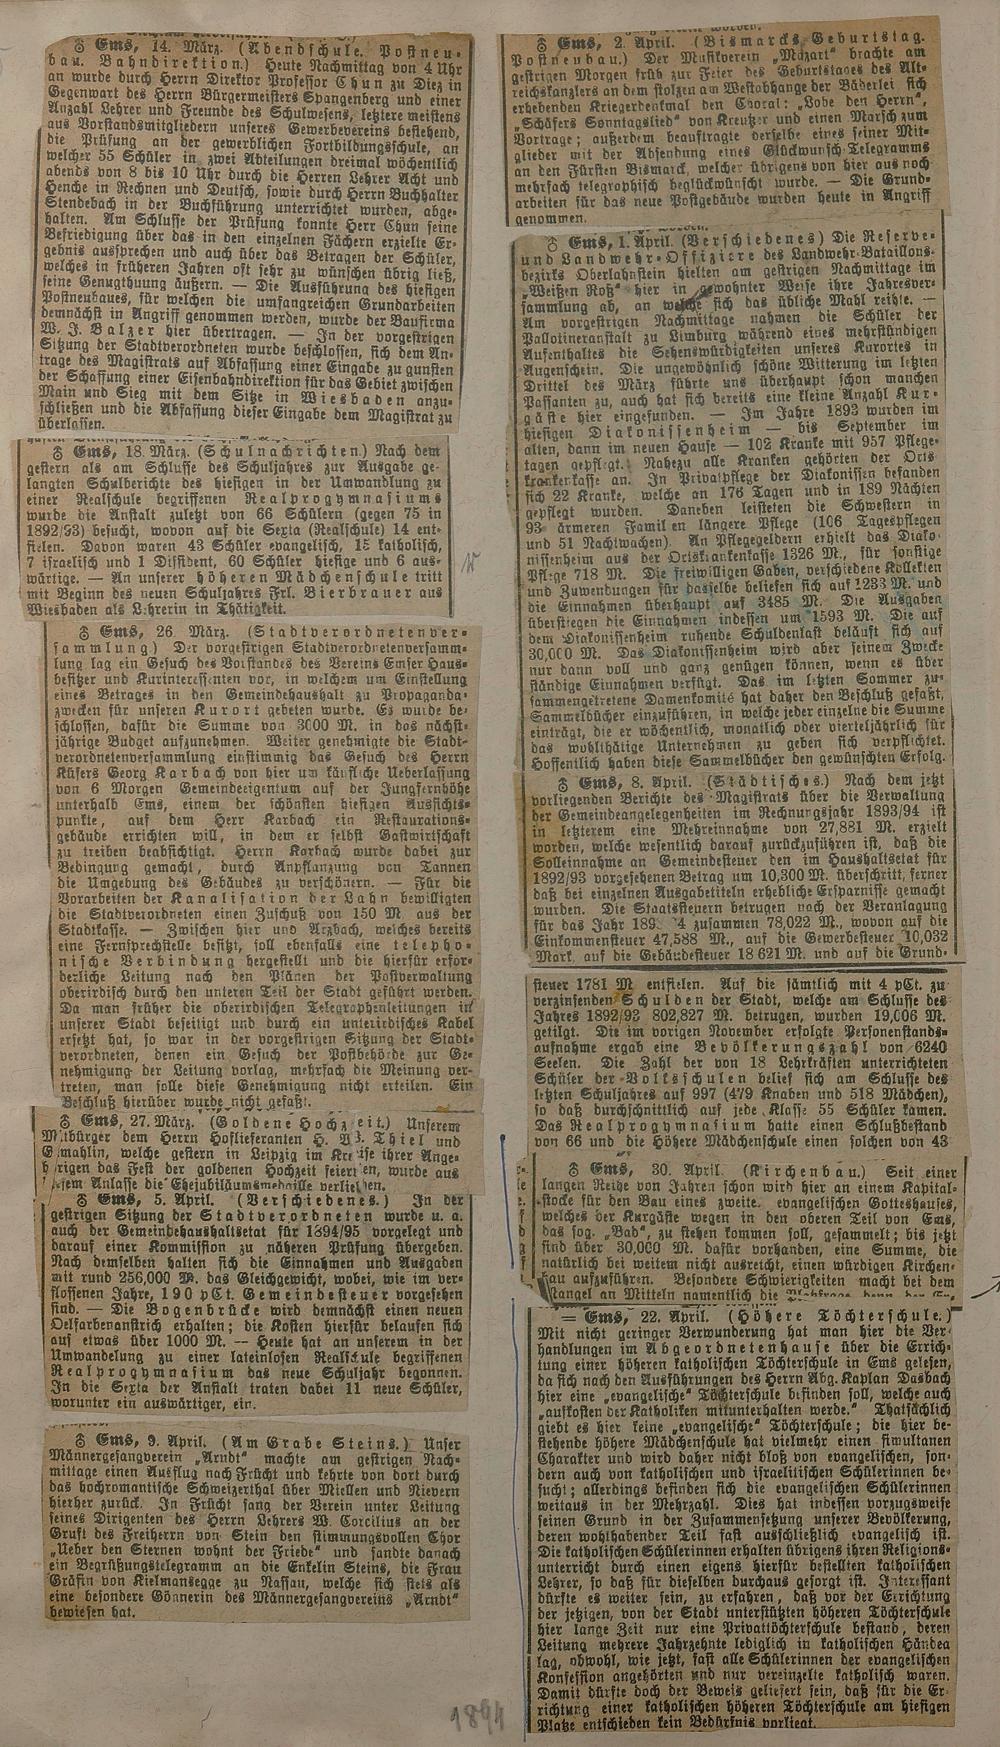 ☿ Ems, 14. März. (Abendschule. Postneu-
bau. Bahndirektion.) Heute Nachmittag von 4 Uhr
an wurde durch Herrn Direktor Professor Chun zu Diez in
Gegenwart des Herrn Bürgermeisters Spangenberg und einer
Anzahl Lehrer und Freunde des Schulwesens, letztere meistens
aus Vorstandsmitgliedern unseres Gewerbevereins bestehend,
die Prüfung an der gewerblichen Fortbildungsschule, an
welcher 55 Schüler in zwei Abteilungen dreimal wöchentlich
abends von 8 bis 10 Uhr durch die Herren Lehrer Acht und
Henche in Rechnen und Deutsch, sowie durch Herrn Buchhalter
Stendebach in der Buchführung unterrichtet wurden, abge-
halten. Am Schlusse der Prüfung konnte Herr Chun seine
Befriedigung über das in den einzelnen Fächern erzielte Er-
gebnis aussprechen und auch über das Betragen der Schüler,
welches in früheren Jahren oft sehr zu wünschen übrig ließ,
seine Genugthuung äußern. — Die Ausführung des hiesigen
Postneubaues, für welchen die umfangreichen Grundarbeiten
demnächst in Angriff genommen werden, wurde der Baufirma
W. J. Balzer hier übertragen. — In der vorgestrigen
Sitzung der Stadtverordneten wurde beschlossen, sich dem An-
trage des Magistrats auf Abfassung einer Eingabe zu gunsten
der Schaffung einer Eisenbahndirektion für das Gebiet zwischen
Main und Sieg mit dem Sitze in Wiesbaden anzu-
schließen und die Abfassung dieser Eingabe dem Magistrat zu
überlassen.
☿ Ems, 18. März. (Schulnachrichten.) Nach dem
gestern als am Schlusse des Schuljahres zur Ausgabe ge-
langten Schulberichte des hiesigen in der Umwandlung zu
einer Realschule begriffenen Realprogymnasiums
wurde die Anstalt zuletzt von 66 Schülern (gegen 75 in
1892/93) besucht, wovon auf die Sexta (Realschule) 14 ent-
fielen. Davon waren 43 Schüler evangelisch, 15 katholisch,
7 israelisch und 1 Dissident, 60 Schüler hiesige und 6 aus-
wärtige. — An unserer höheren Mädchenschule tritt
mit Beginn des neuen Schuljahres Frl. Bierbrauer aus
Wiesbaden als Lehrerin in Thätigkeit.
☿ Ems, 26. März. (Stadtverordnetenver-
sammlung) Der vorgestrigen Stadtverordnetenversamm-
lung lag ein Gesuch des Vorstandes des Vereins Emser Haus-
besitzer und Kurinteressenten vor, in welchem um Einstellung
eines Betrages in den Gemeindehaushalt zu Propaganda-
zwecken für unseren Kurort gebeten wurde. Es wurde be-
schlossen, dafür die Summe von 3000 M. in das nächst-
jährige Budget aufzunehmen. Weiter genehmigte die Stadt-
verordnetenversammlung einstimmig das Gesuch des Herrn
Küfers Georg Karbach von hier um käufliche Ueberlassung
von 6 Morgen Gemeindeeigentum auf der Jungfernhöhe
unterhalb Ems, einem der schönsten hiesigen Aussichts-
punkte, auf dem Herr Karbach ein Restaurations-
gebäude errichten will, in dem er selbst Gastwirtschaft
zu treiben beabsichtigt. Herrn Karbach wurde dabei zur
Bedingung gemacht, durch Anpflanzung von Tannen
die Umgebung des Gebäudes zu verschönern. — Für die
Vorarbeiten der Kanalisation der Lahn bewilligten
die Stadtverordneten einen Zuschuß von 150 M. aus der
Stadtkasse. — Zwischen hier und Arzbach, welches bereits
eine Fernsprechstelle besitzt, soll ebenfalls eine telepho-
nische Verbindung hergestellt und die hierfür erfor-
derliche Leitung nach den Plänen der Postverwaltung
oberirdisch durch den unteren Teil der Stadt geführt werden.
Da man früher die oberirdischen Telegraphenleitungen in
unserer Stadt beseitigt und durch ein unterirdisches Kabel
ersetzt hat, so war in der vorgestrigen Sitzung der Stadt-
verordneten, denen ein Gesuch der Postbehörde zur Ge-
nehmigung der Leitung vorlag, mehrfach die Meinung ver-
treten, man solle diese Genehmigung nicht erteilen. Ein
Beschluß hierüber wurde nicht gefaßt.
☿ Ems, 27. März. (Goldene Hochzeit.) Unserem
Mitbürger dem Herrn Hoflieferanten H. W. Thiel und
Gemahlin, welche gestern in Leipzig im Kreise ihrer Ange-
hörigen das Fest der goldenen Hochzeit feierten, wurde aus
diesem Anlasse die Ehejubiläumsmedaille verliehen.
☿ Ems, 5. April. (Verschiedenes.) In der
gestrigen Sitzung der Stadtverordneten wurde u. a.
auch der Gemeindehaushaltsetat für 1894/95 vorgelegt und
darauf einer Kommission zu näheren Prüfung übergeben.
Nach demselben halten sich die Einnahmen und Ausgaben
mit rund 256,000 M. das Gleichgewicht, wobei, wie im ver-
flossenen Jahre, 190 pCt. Gemeindesteuer vorgesehen
sind. — Die Bogenbrücke wird demnächst einen neuen
Oelfarbenanstrich erhalten; die Kosten hierfür belaufen sich
auf etwas über 1000 M. — Heute hat an unserem in der
Umwandelung zu einer lateinlosen Realschule begriffenen
Realprogymnasium das neue Schuljahr begonnen.
In die Sexta der Anstalt traten dabei 11 neue Schüler,
worunter ein auswärtiger, ein.
☿ Ems, 9. April. (Am Grabe Steins.) Unser
Männergesangverein „Arndt“ machte am gestrigen Nach-
mittage einen Ausflug nach Frücht und kehrte von dort durch
das hochromantische Schweizerthal über Miellen und Nievern
hierher zurück. In Frücht sang der Verein unter Leitung
seines Dirigenten des Herrn Lehrers W. Corcilius an der
Gruft des Freiherrn von Stein den stimmungsvollen Chor
„Ueber den Sternen wohnt der Friede“ und sandte danach
ein Begrüßungstelegramm an die Enkelin Steins, die Frau
Gräfin von Kielmansegge zu Nassau, welche sich stets als
eine besondere Gönnerin des Männergesangvereins „Arndt“
bewiesen hat.
1894
☿ Ems, 2. April. (Bismarcks Geburtstag.
Postneubau.) Der Musikverein „Mozart“ brachte am
gestrigen Morgen früh zur Feier des Geburtstages des Alt-
reichskanzlers an dem stolzen am Westabhange der Bäderlei sich
erhebenden Kriegerdenkmal den Choral: „Lobe den Herrn“,
„Schäfers Sonntagslied“ von Kreutzer und einen Marsch zum
Vortrage; außerdem beauftragte derselbe eines seiner Mit-
glieder mit der Absendung eines Glückwunsch-Telegramms
an den Fürsten Bismarck, welcher übrigens von hier aus noch
mehrfach telegraphisch beglückwünscht wurde. — Die Grund-
arbeiten für das neue Postgebäude wurden heute in Angriff
genommen.
☿ Ems, 1. April. (Verschiedenes) Die Reserve-
und Landwehr-Offiziere des Landwehr-Bataillons-
bezirks Oberlahnstein hielten am gestrigen Nachmittage im
„Weißen Roß“ hier in gewohnter Weise ihre Jahresver-
sammlung ab, an welche sich das übliche Mahl reihte. —
Am vorgestrigen Nachmittage nahmen die Schüler der
Pallotineranstalt zu Limburg während eines mehrstündigen
Aufenthaltes die Sehenswürdigkeiten unseres Kurortes in
Augenschein. Die ungewöhnlich schöne Witterung im letzten
Drittel des März führte uns überhaupt schon manchen
Passanten zu, auch hat sich bereits eine kleine Anzahl Kur-
gäste hier eingefunden. — Im Jahre 1893 wurden im
hiesigen Diakonissenheim — bis September im
alten, dann im neuen Hause — 102 Kranke mit 957 Pflege-
tagen gepflegt. Nahezu alle Kranken gehörten der Orts
krankenkasse an. In Privatpflege der Diakonissen befanden
sich 22 Kranke, welche an 176 Tagen und in 189 Nächten
gepflegt wurden. Daneben leisteten die Schwestern in
93 ärmeren Familien längere Pflege (106 Tagespflegen
und 51 Nachtwachen). An Pflegegeldern erhielt das Diako-
nissenheim aus der Ortskrankenkasse 1326 M., für sonstige
Pflege 718 M. Die freiwilligen Gaben, verschiedene Kollekten
und Zuwendungen für dasselbe beliefen sich auf 1233 M. und
die Einnahmen überhaupt auf 3485 M. Die Ausgaben
überstiegen die Einnahmen indessen um 1593 M. Die auf
dem Diakonissenheim ruhende Schuldenlast beläuft sich auf
30,000 M. Das Diakonissenheim wird aber seinem Zwecke
nur dann voll und ganz genügen können, wenn es über
ständige Einnahmen verfügt. Das im letzten Sommer zu-
sammengetretene Damenkomité hat daher den Beschluß gefaßt,
Sammelbücher einzuführen, in welche jeder einzelne die Summe
einträgt, die er wöchentlich, monatlich oder vierteljährlich für
das wohlthätige Unternehmen zu geben sich verpflichtet.
Hoffentlich haben diese Sammelbücher den gewünschten Erfolg.
☿ Ems, 8. April. (Städtisches.) Nach dem jetzt
vorliegenden Berichte des Magistrats über die Verwaltung
der Gemeindeangelegenheiten im Rechnungsjahr 1893/94 ist
in letzterem eine Mehreinnahme von 27,881 M. erzielt
worden, welche wesentlich darauf zurückzuführen ist, daß die
Solleinnahme an Gemeindesteuer den im Haushaltsetat für
1892/93 vorgesehenen Betrag um 10,300 M. überschritt, ferner
daß bei einzelnen Ausgabetiteln erhebliche Ersparnisse gemacht
wurden. Die Staatssteuern betrugen nach der Veranlagung
für das Jahr 189. 4 zusammen 78,022 M., wovon auf die
Einkommensteuer 47,588 M., auf die Gewerbesteuer 10,032
Mark, auf die Gebäudesteuer 18 621 M. und auf die Grund-
steuer 1781 M entfielen. Auf die sämtlich mit 4 pCt. zu
verzinsenden Schulden der Stadt, welche am Schlusse des
Jahres 1892/93 802,827 M. betrugen, wurden 19,006 M.
getilgt. Die im vorigen November erfolgte Personenstands-
aufnahme ergab eine Bevölkerungszahl von 6240
Seelen. Die Zahl der von 18 Lehrkräften unterrichteten
Schüler der Volksschulen belief sich am Schlusse des
letzten Schuljahres auf 997 (479 Knaben und 518 Mädchen),
so daß durchschnittlich auf jede Klasse 55 Schüler kamen.
Das Realprogymnasium hatte einen Schlußbestand
von 66 und die Höhere Mädchenschule einen solchen von 43
☿ Ems, 30. April. (Kirchenbau.) Seit einer
langen Reihe von Jahren schon wird hier an einem Kapital-
stocke für den Bau eines zweite. evangelischen Gotteshauses,
welches der Kurgäste wegen in den oberen Teil von Ems,
das sog. „Bad“, zu stehen kommen soll, gesammelt; bis jetzt
sind über 30,000 M. dafür vorhanden, eine Summe, die
natürlich bei weitem nicht ausreicht, einen würdigen Kirchen-
bau aufzuführen. Besondere Schwierigkeiten macht bei dem
Mangel an Mitteln namentlich die
= Ems, 22. April. (Höhere Töchterschule.)
Mit nicht geringer Verwunderung hat man hier die Ver-
handlungen im Abgeordnetenhause über die Errich-
tung einer höheren katholischen Töchterschule in Ems gelesen,
da sich nach den Ausführungen des Herrn Abg. Kaplan Dasbach
hier eine „evangelische“ Töchterschule befinden soll, welche auch
„aufkosten der Katholiken mitunterhalten werde.“ Thatsächlich
giebt es hier keine „evangelische“ Töchterschule; die hier be-
stehende höhere Mädchenschule hat vielmehr einen simultanen
Charakter und wird daher nicht bloß von evangelischen, son-
dern auch von katholischen und israelitischen Schülerinnen be-
sucht; allerdings befinden sich die evangelischen Schülerinnen
weitaus in der Mehrzahl. Dies hat indessen vorzugsweise
seinen Grund in der Zusammensetzung unserer Bevölkerung,
deren wohlhabender Teil fast ausschließlich evangelisch ist.
Die katholischen Schülerinnen erhalten übrigens ihren Religions-
unterricht durch einen eigens hierfür bestellten katholischen
Lehrer, so daß für dieselben durchaus gesorgt ist. Interessant
dürfte es weiter sein, zu erfahren, daß vor der Errichtung
der jetzigen, von der Stadt unterstützten höheren Töchterschule
hier lange Zeit nur eine Privattöchterschule bestand, deren
Leitung mehrere Jahrzehnte lediglich in katholischen Händen
lag, obwohl, wie jetzt, fast alle Schülerinnen der evangelischen
Konfession angehörten und nur vereinzelte katholisch waren.
Damit dürfte doch der Beweis geliefert sein, daß für die Er-
richtung einer katholischen höheren Töchterschule am hiesigen
Platze entschieden kein Bedürfnis vorliegt.